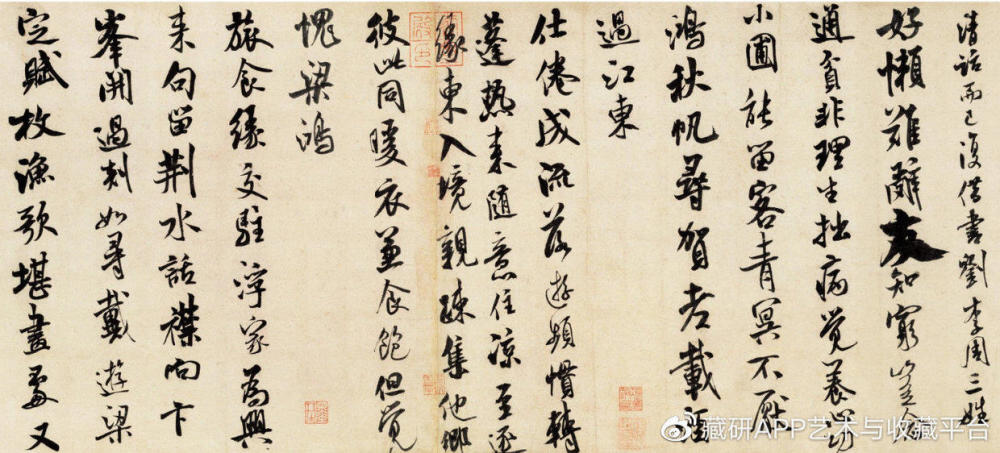 清話而已復借書劉李周三姓
好懶難辭友知窮豈念
通貧非理生拙病覺養心功
小圃能留客青冥不厭
鴻秋帆尋賀老載酒
過江東
仕倦成流落遊頻慣轉
蓬熱來隨意住涼至逐
緣東入境親疎集他鄉
彼此同暖衣兼食飽但覺
愧梁鴻
旅食緣交駐浮家為興
来句留荊水話襟向卞
峯開過剡如尋戴遊梁
定賦枚漁歌堪畫處又
藏研APP艺术与收藏平台